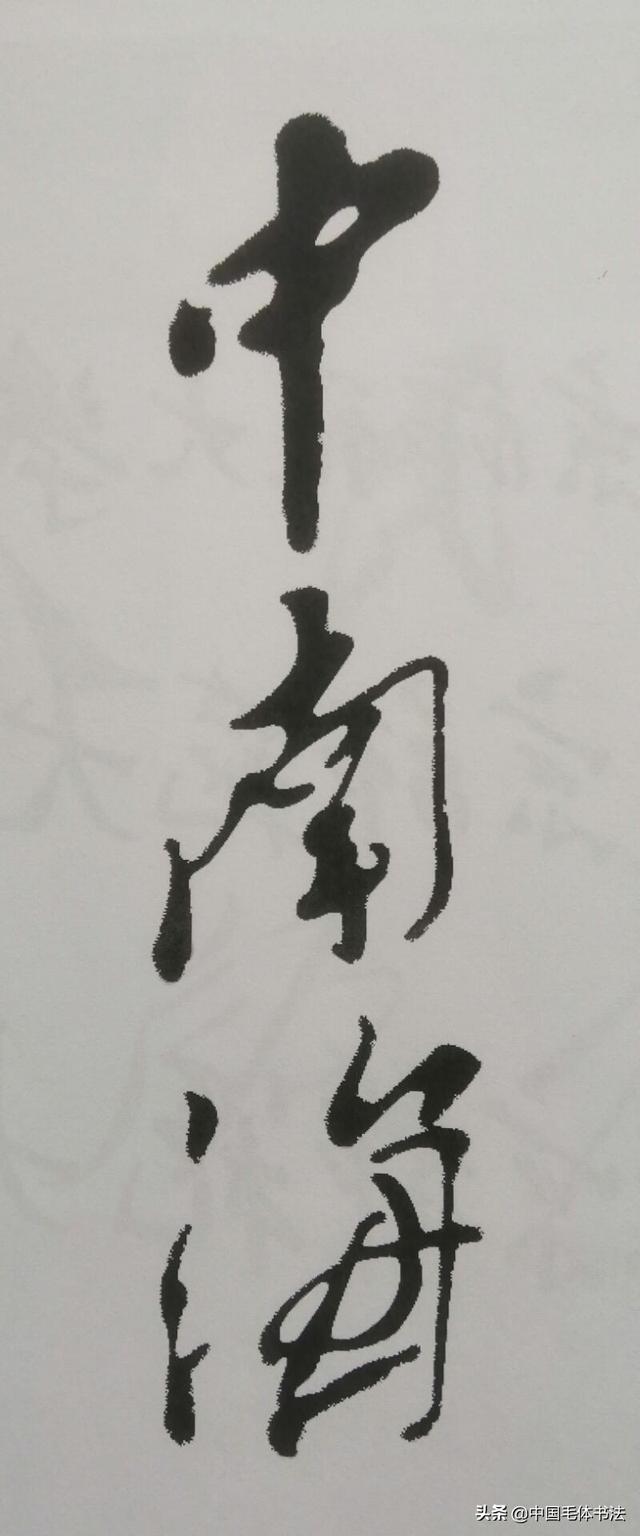 中南海
头条 @中国毛体书法